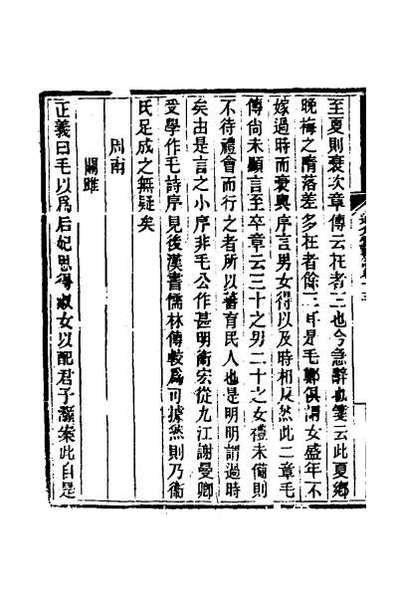 至夏則衰次章傳云在者三也今急辭也箋云此夏鄉
晚梅之墮落差多在者餘三耳是毛鄭俱謂女盛年不
嫁過時而衰與序言男女得以及時相反然此二章毛
傳尚未顯言至卒章云三十之男二十之女禮未備則
不待禮會而行之者所以蕃育民人也是明明謂過時
矣由是言之小序非毛公作甚明衞宏從九江謝曼卿
受學作毛詩序見後漢書儒林傳較爲可據然則乃衞
氏足成之無疑矣
周南
關雎
正義曰毛以爲后妃思得淑女以配君子灝案此自是